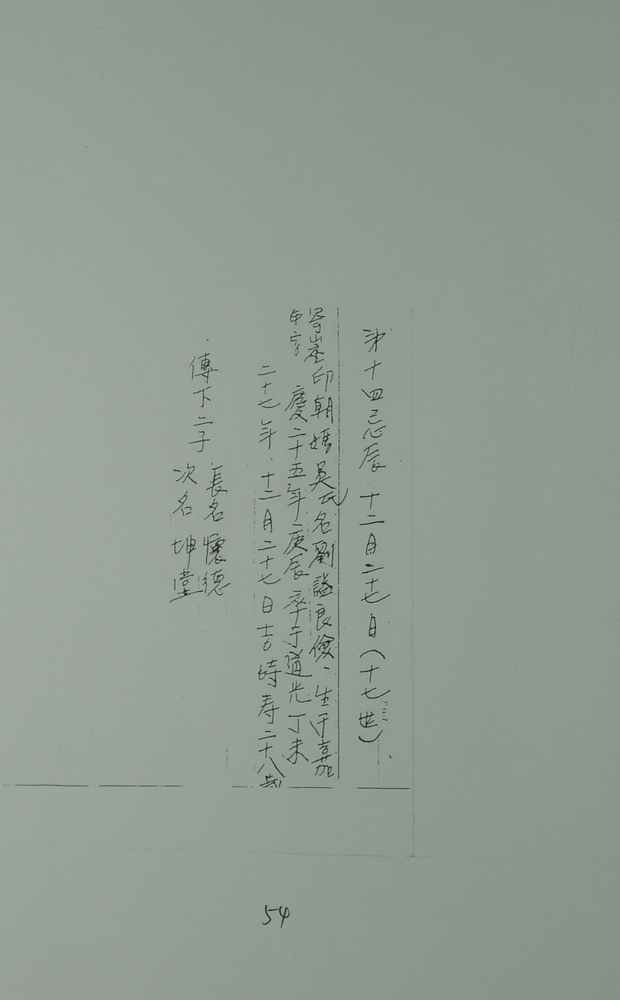 第十四忌辰 十二月二十七日(十七世)
印朝媽吳氏名劉謚良儉、生于嘉
慶二十五年庚辰卒于道光丁未
二十七年、十二月二十七日吉時寿二十八歲
傳下二子 長名懷德
次名坤堂
54